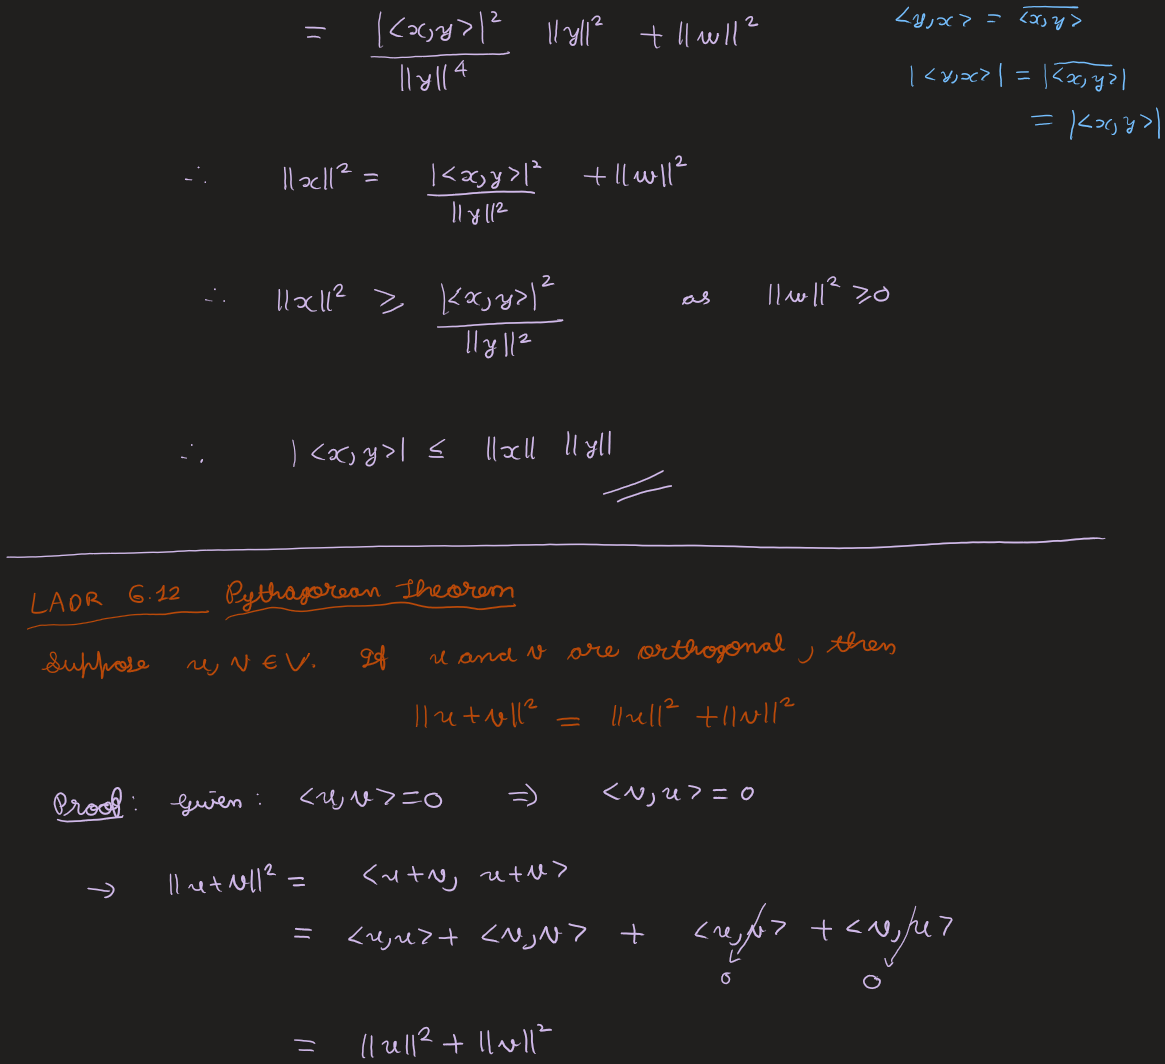 = |<x,y>|² / ||y||⁴ ||y||² + ||w||²
<y,x> = \overline{<x,y>}
|<y,x>| = |\overline{<x,y>}|
= |<x,y>|
∴ ||x||² = |<x,y>|² / ||y||² + ||w||²
∴ ||x||² ≥ |<x,y>|² / ||y||² as ||w||² ≥ 0
∴ |<x,y>| ≤ ||x|| ||y||
LADR 6.12 Pythagorean Theorem
Suppose u, v ∈ V. If u and v are orthogonal, then
||u+v||² = ||u||² + ||v||²
Proof: Given: <u,v> = 0 ⇒ <v,u> = 0
→ ||u+v||² = <u+v, u+v>
= <u,u> + <v,v> + <u,v> + <v,u>
0 0
= ||u||² + ||v||²